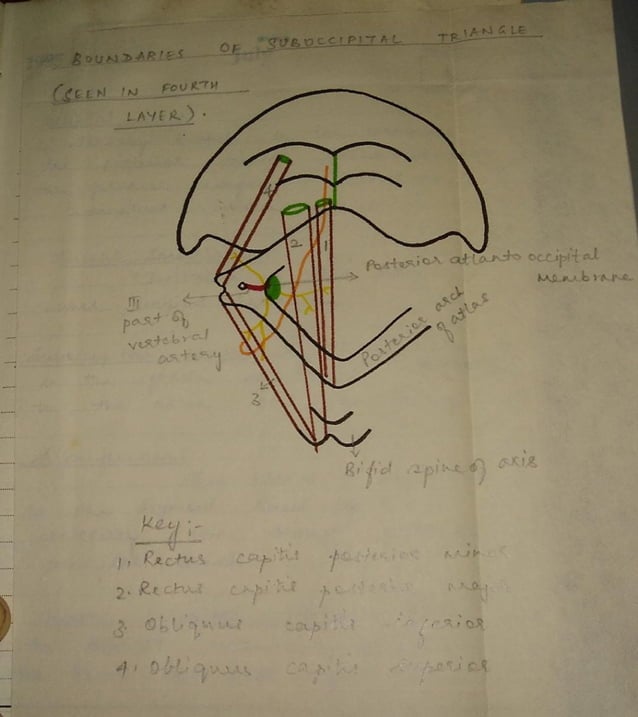 BOUNDARIES OF SUBOCCIPITAL TRIANGLE
(SEEN IN FOURTH
LAYER).
4
2
1
Posterior atlanto occipital
Membrane
III
part of
vertebral
artery
Posterior arch
of atlas
3
Bifid spine of axis
Key:-
1. Rectus capitis posterior minor
2. Rectus capitis posterior major
3. Obliquus capitis inferior
4. Obliquus capitis superior